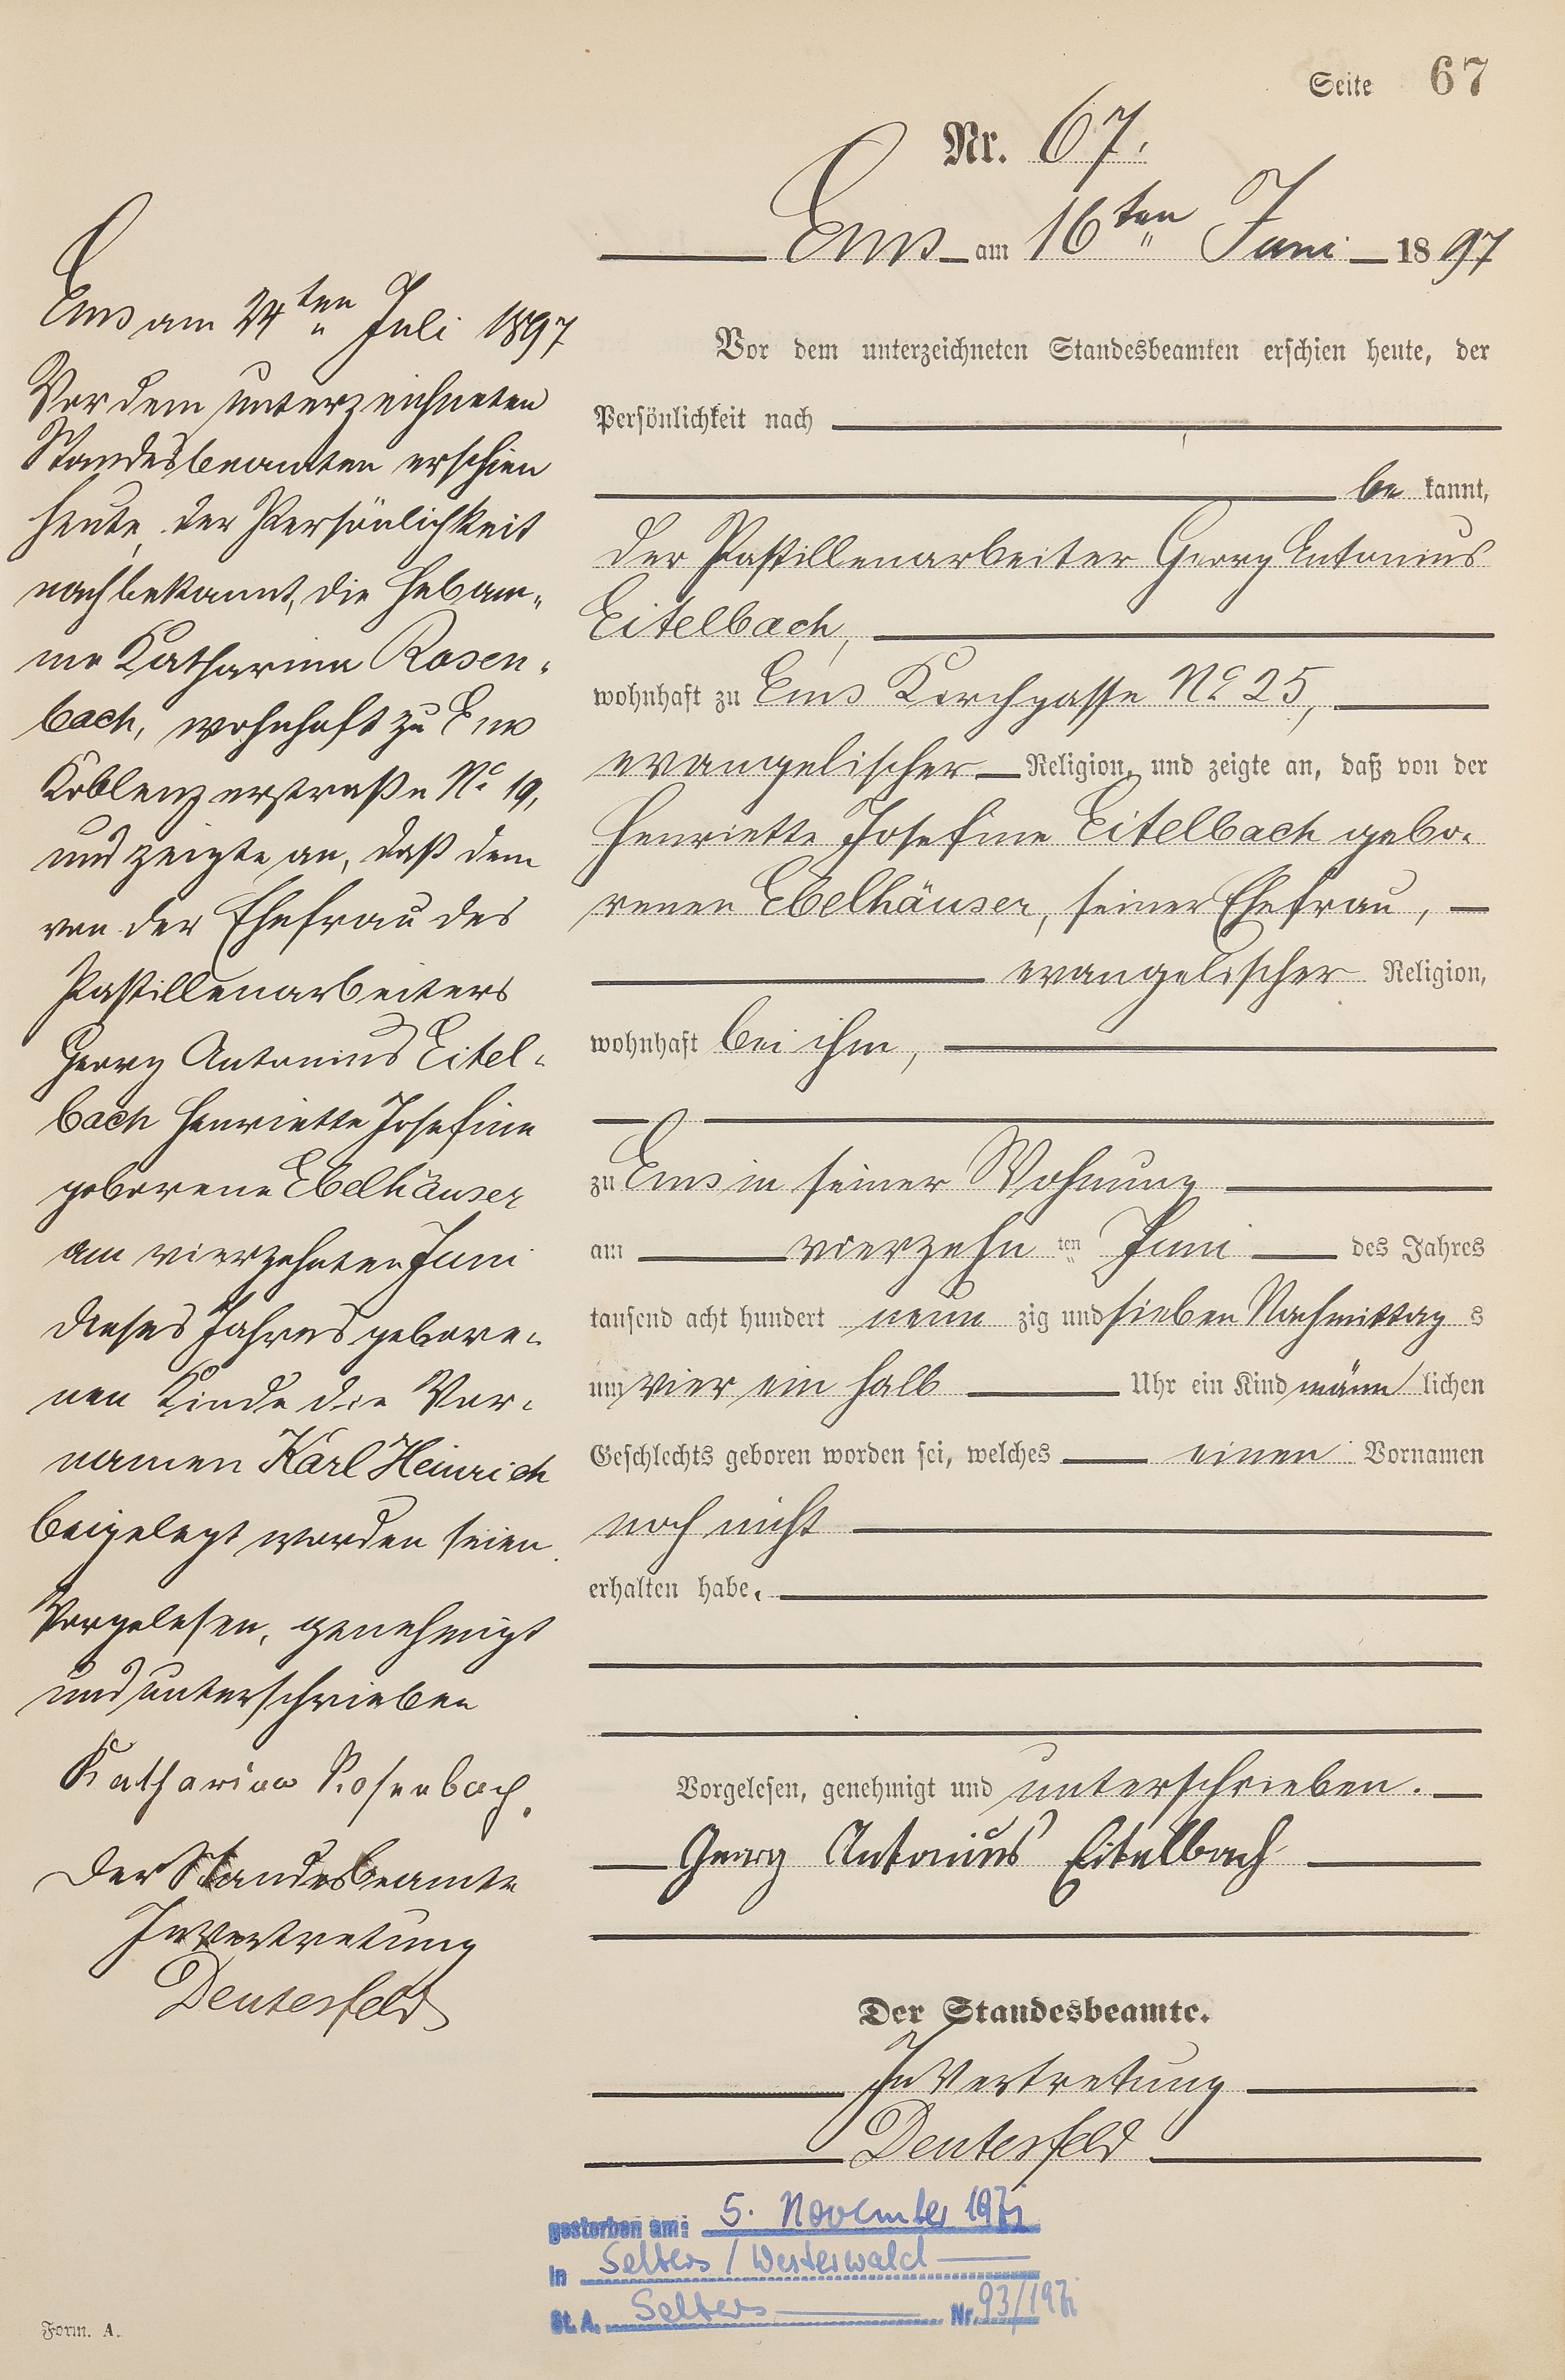 Seite 67
Nr. 67.
Ems am 16ten Juni 1897
Vor dem unterzeichneten Standesbeamten erschien heute, der
Persönlichkeit nach
bekannt,
der Pastillenarbeiter Georg Antonius
Eitelbach,
wohnhaft zu Ems Kirchgasse No 25,
evangelischer Religion, und zeigte an, daß von der
Henriette Josefine Eitelbach gebo-
renen Ebelhäuser, seiner Ehefrau,
evangelischer Religion,
wohnhaft bei ihm,
zu Ems in seiner Wohnung
am vierzehn ten Juni des Jahres
tausend acht hundert neun zig und sieben Nachmittag s
um vier ein halb Uhr ein Kind männ lichen
Geschlechts geboren worden sei, welches einen Vornamen
noch nicht
erhalten habe.
Vorgelesen, genehmigt und unterschrieben.
Georg Antonius Eitelbach
Der Standesbeamte.
In Vertretung
Deutesfeld
Ems am 24ten Juli 1897
Vor dem unterzeichneten
Standesbeamten erschien
heute, der Persönlichkeit
nach bekannt, die Hebam-
me Katharina Rosen-
bach, wohnhaft zu Ems
Koblenzerstraße No 19,
und zeigte an, daß dem
von der Ehefrau des
Pastillenarbeiters
Georg Antonius Eitel-
bach Henriette Josefine
geborene Ebelhäuser
am vierzehnten Juni
dieses Jahres gebore-
nen Kinde die Vor-
namen Karl Heinrich
beigelegt worden seien.
Vorgelesen, genehmigt
und unterschrieben
Katharina Rosenbach.
Der Standesbeamte
In Vertretung
Deutesfeld
gestorben am: 5. November
in Selters / Westerwald
St. A. Selters Nr.
Form. A.